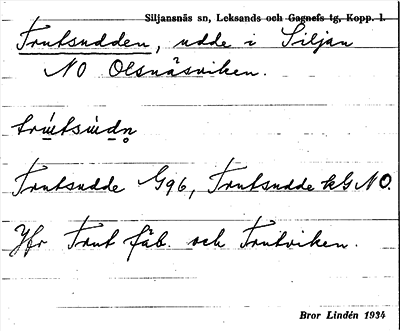 Siljansnäs sn, Leksands och Gagnefs tg, Kopp. l.
Trutsudden, udde i Siljan
NO Olsnäsviken.
trútsúdn̥
Trutsudde G96, Trutsudde kG NO.
Jfr Trut fäb. och Trutviken.
Bror Lindén 1934